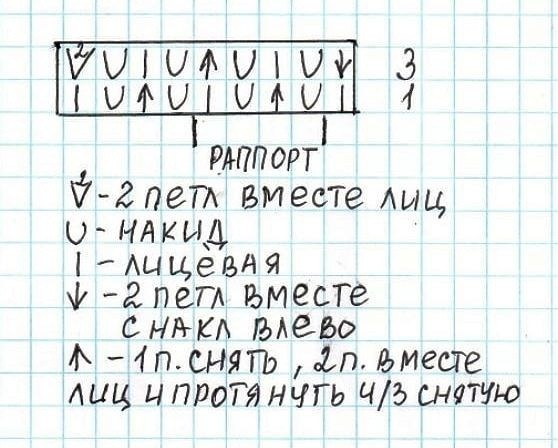 2̌∇ U | U ↑ U | U ↓ 3
| U ↑ U | U ↑ U | 1
РАППОРТ
2∇ - 2 ПЕТЛ ВМЕСТЕ ЛИЦ
U - НАКИД
| - ЛИЦЕВАЯ
↓ - 2 ПЕТЛ ВМЕСТЕ
С НАКЛ ВЛЕВО
↑ - 1 П. СНЯТЬ, 2 П. ВМЕСТЕ
ЛИЦ И ПРОТЯНУТЬ Ч/З СНЯТУЮ